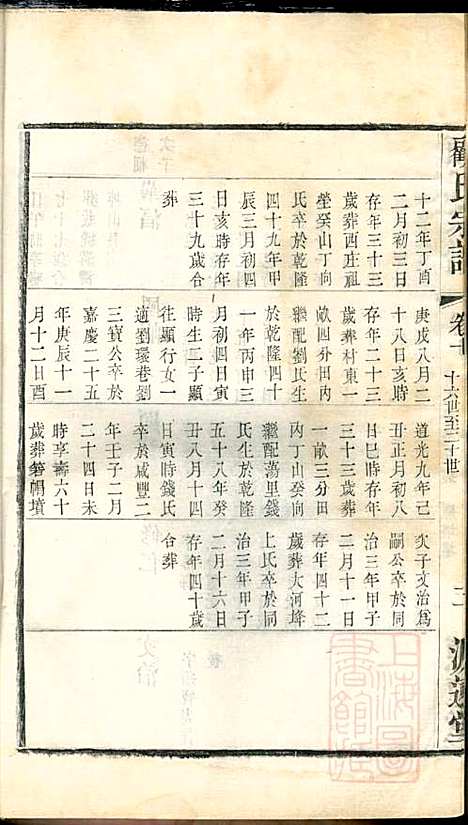 氏宗譜
卷十
十六世至二十世
二
十二年丁酉
二月初三日
存年三十三
歲葬西庄祖
塋癸山丁向
氏卒於乾隆
四十九年甲
辰三月初四
日亥時存年
三十九歲合
葬
庚戌八月二
十八日亥時
存年二十三
歲葬村東一
畝四分田內
繼配劉氏生
於乾隆四十
一年丙申三
月初四日寅
時生二子顯
往顯行女一
適劉環巷劉
三寶公卒於
嘉慶二十五
年庚辰十一
月十二日酉
道光九年己
丑正月初八
日巳時存年
三十三歲葬
一畝三分田
內丁山癸向
繼配蕩里錢
氏生於乾隆
五十八年癸
丑八月十四
日寅時錢氏
卒於咸豐二
年壬子二月
二十四日未
時享壽六十
歲葬箬帽墳
次子文治為
嗣公卒於同
治三年甲子
二月十一日
存年四十二
歲葬大河埄
上氏卒於同
治三年甲子
二月十六日
存年四十歲
合葬
上海圖
書館藏